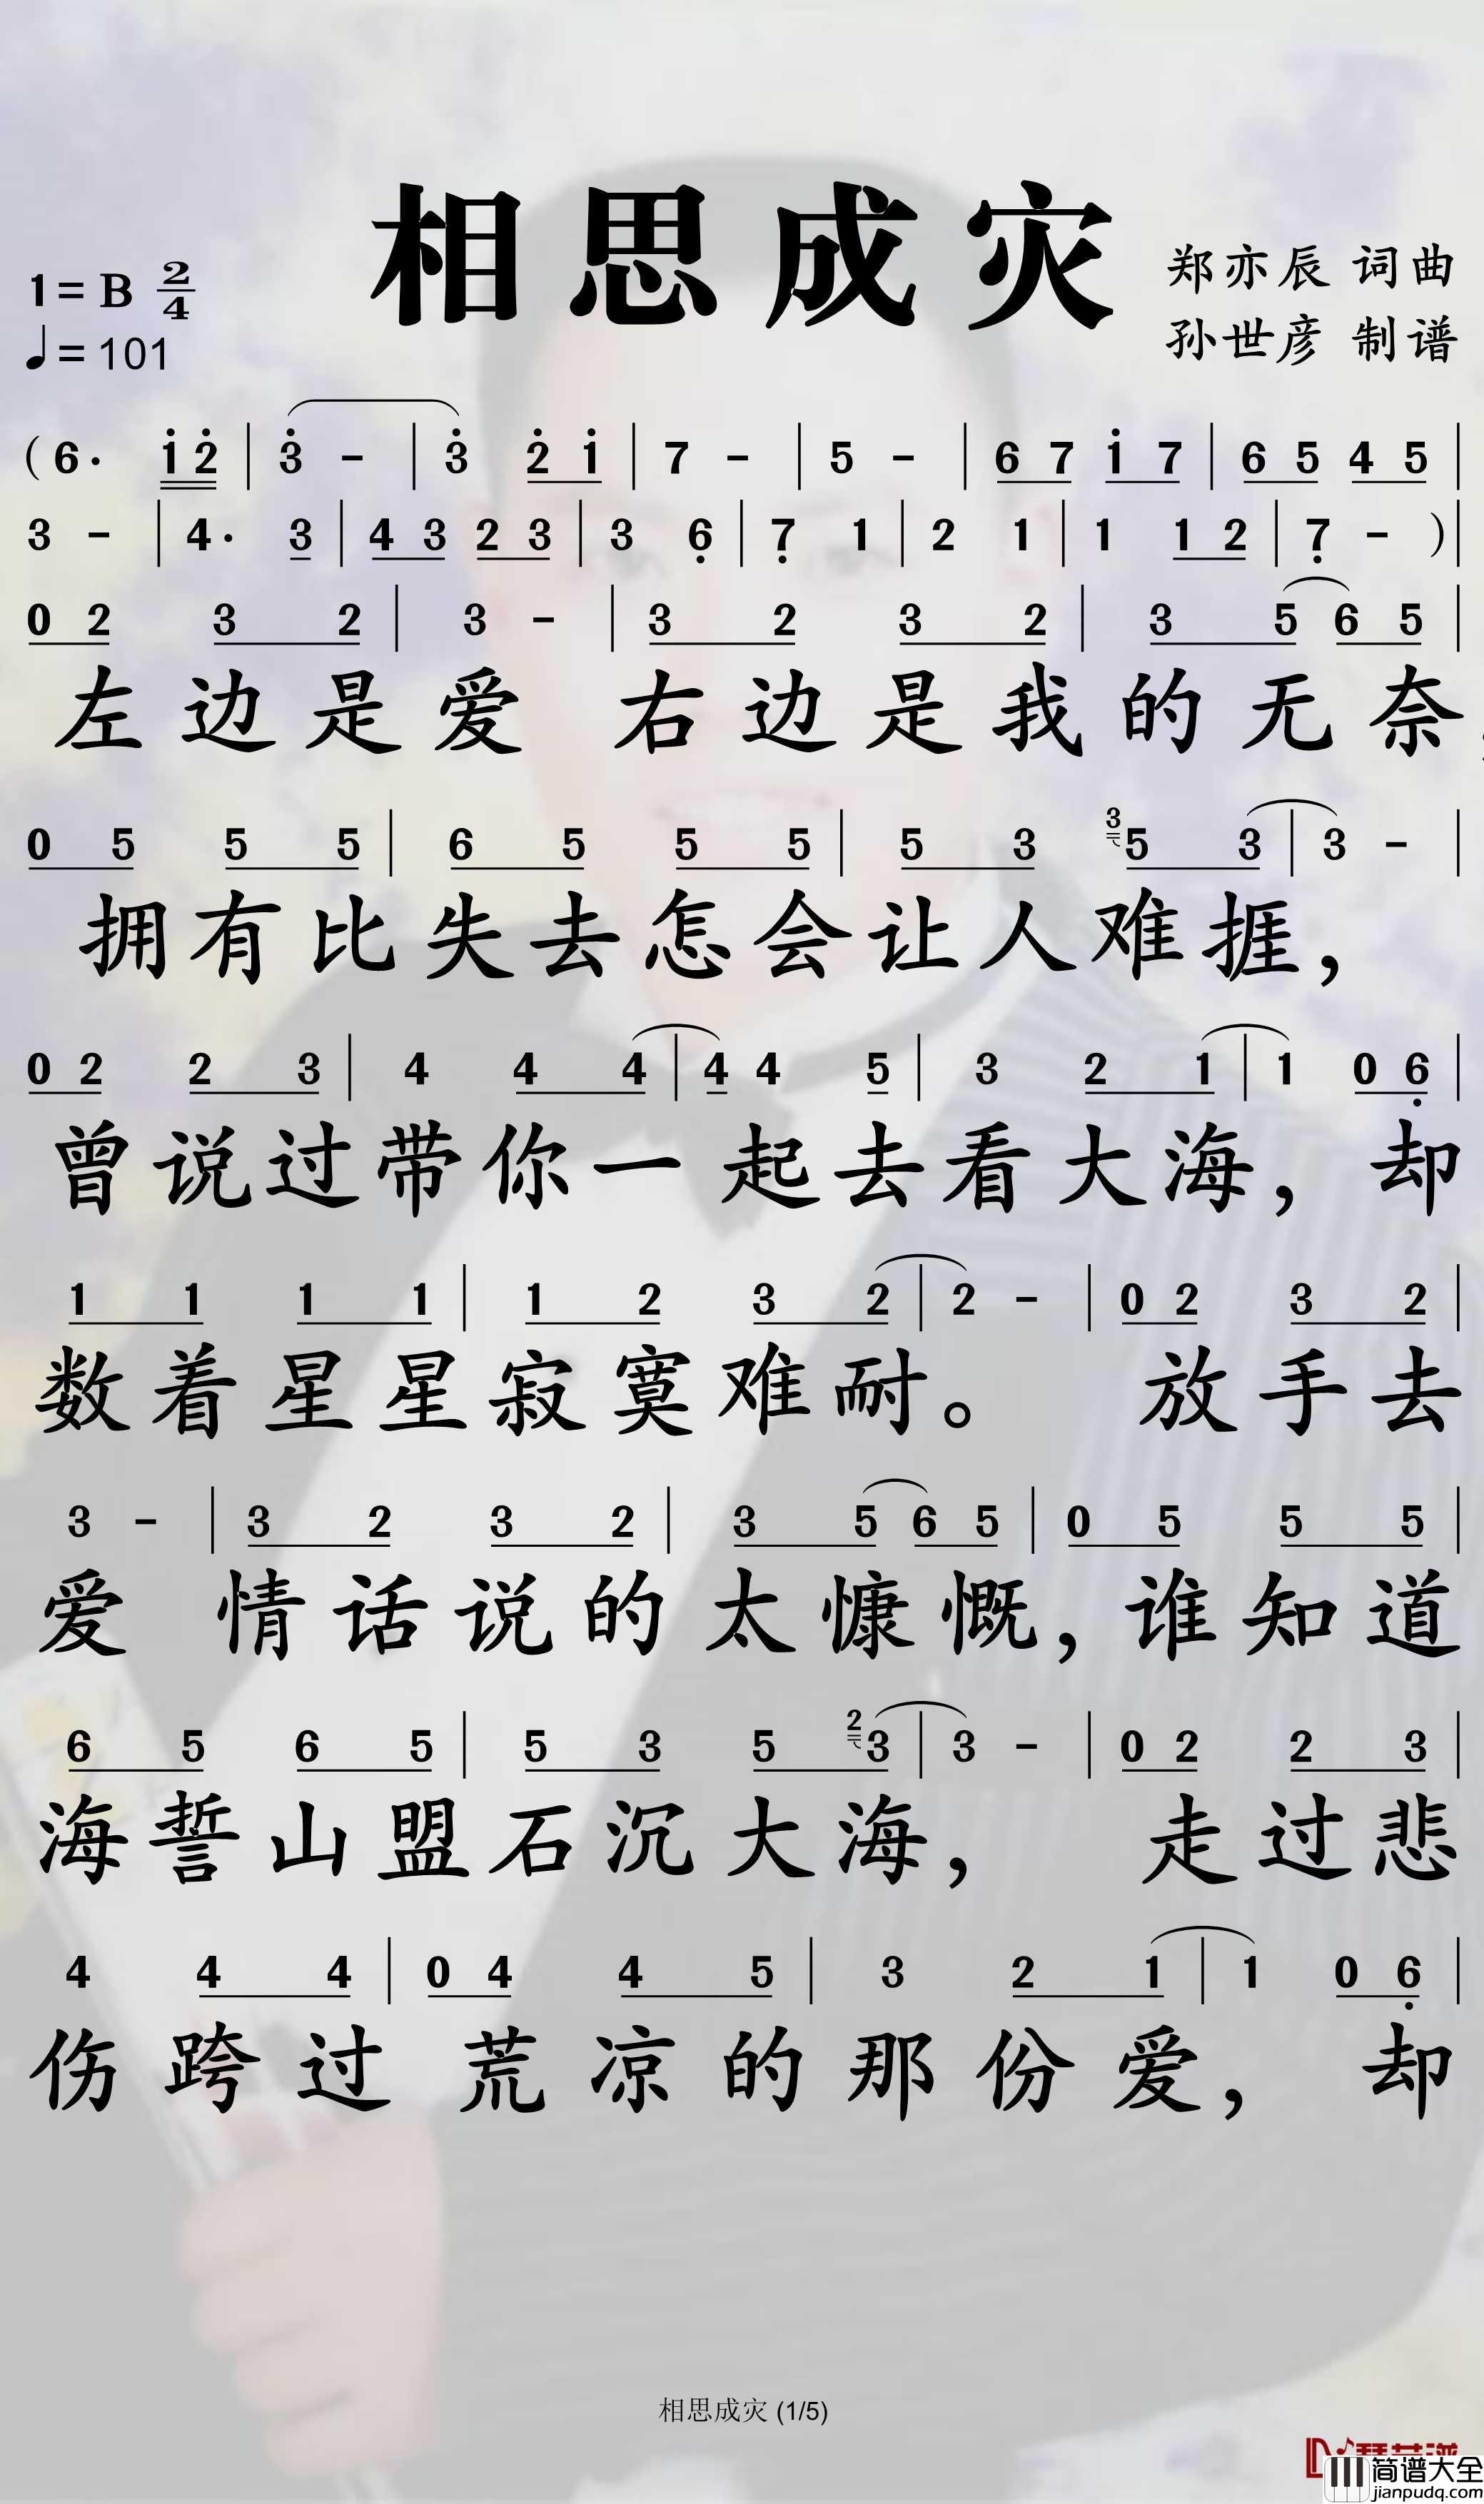 相思成灾
1=B 2/4
♩=101
郑亦辰 词曲
孙世彦 制谱
( 6· i 2̇ | 3̇ - | 3̇ 2̇ i | 7 - | 5 - | 6 7 i 7 | 6 5 4 5 |
3 - | 4· 3 | 4 3 2 3 | 3 6̣ | 7̣ 1 | 2 1 | 1 1 2 | 7̣ - ) |
0 2 3 2 | 3 - | 3 2 3 2 | 3 5 6 5 |
左边是爱 右边是我的无奈
0 5 5 5 | 6 5 5 5 | 5 3 3 5 3 | 3 - |
拥有比失去怎会让人难捱，
0 2 2 3 | 4 4 4 | 4 4 5 | 3 2 1 | 1 0 6̣ |
曾说过带你一起去看大海，却
1 1 1 1 | 1 2 3 2 | 2 - | 0 2 3 2 |
数着星星寂寞难耐。 放手去
3 - | 3 2 3 2 | 3 5 6 5 | 0 5 5 5 |
爱 情话说的太慷慨，谁知道
6 5 6 5 | 5 3 5 2 3 | 3 - | 0 2 2 3 |
海誓山盟石沉大海， 走过悲
4 4 4 | 0 4 4 5 | 3 2 1 | 1 0 6̣ |
伤跨过荒凉的那份爱， 却
相思成灾 (1/5)
简谱大全
jianpudq.com